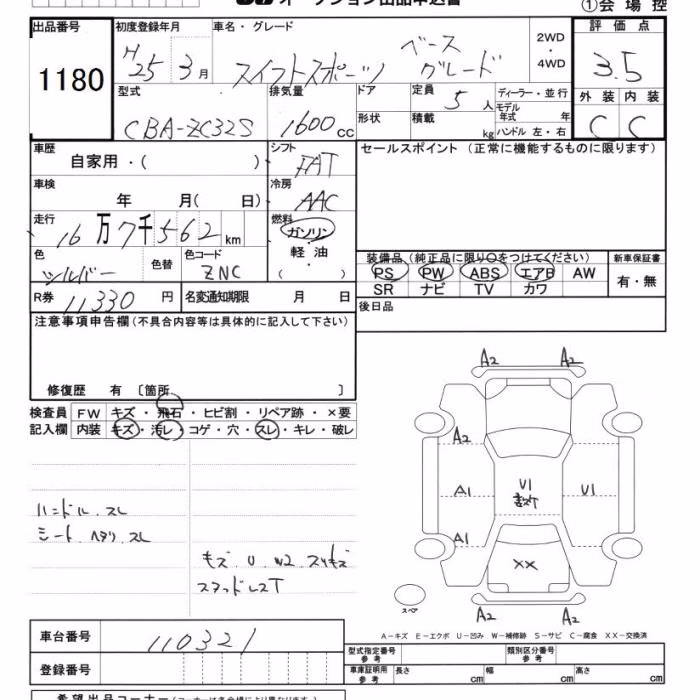 オークション出品申込書
①会場控
出品番号 初度登録年月 車名・グレード 2WD ・ 4WD 評価点
1180 H25 3月 スイフトスポーツ ベースグレード 3.5
型式 排気量 ドア 定員 5人 ディーラー・並行 外装 内装
CBA-ZC32S 1600cc 形状 積載 kg モデル年式 年 ハンドル 左・右 C C
車歴 自家用・( ) シフト FAT セールスポイント (正常に機能するものに限ります)
車検 年 月( 日) 冷房 AAC
走行 16万7千562km 燃料 ガソリン・軽油・( )
色 シルバー 色替 色コード ZNC
装備品(純正品に限り○をつけてください) 新車保証書
PS PW ABS エアB AW 有・無
SR ナビ TV カワ
R券 11330円 名変通知期限 月 日 後日品
注意事項申告欄(不具合内容等は具体的に記入して下さい)
修復歴 有 〔箇所 〕
検査員 FW キズ・飛石・ヒビ割・リペア跡・×要
記入欄 内装 キズ・汚レ・コゲ・穴・スレ・キレ・破レ
ハンドル スレ
シート ヘタリ スレ
キズ U W2 スリキズ
スタッドレスT
A2 A2
A2
A1 U1 U1
A1
XX
A2 A2
スペア
A-キズ E-エクボ U-凹み W-補修跡 S-サビ C-腐食 XX-交換済
車台番号 110321
型式指定番号 参考 類別区分番号 参考
登録番号
車庫証明用 参考 長さ cm 幅 cm 高さ cm
希望出品コーナー(コーナーは各会場により異なります)